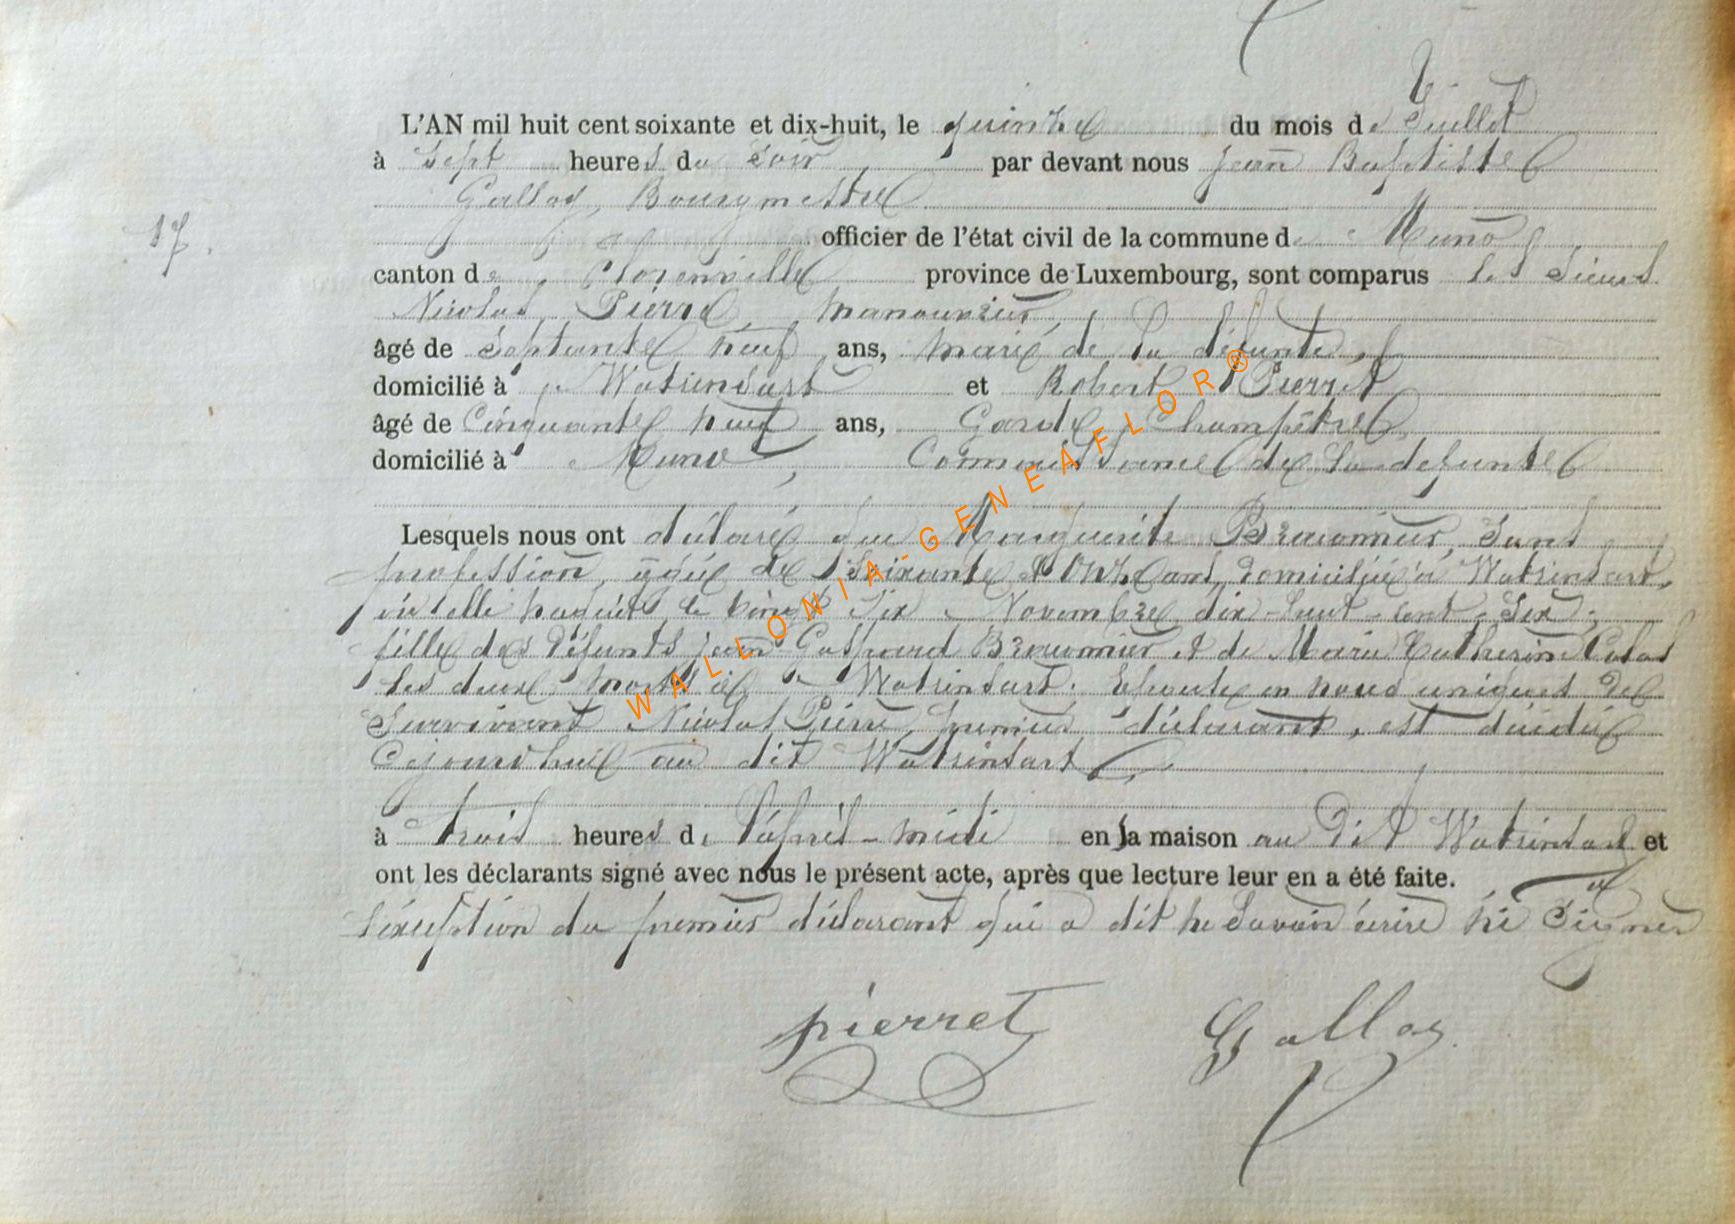 L'AN mil huit cent soixante et dix-huit, le quinze du mois de Juillet
à sept heures du soir par devant nous jean Baptiste
Gallas, Bourgmestre
17. officier de l'état civil de la commune de Muno
canton de Florenville province de Luxembourg, sont comparus les Sieurs
Nicolas Pierre, manouvrier,
âgé de Septante neuf ans, mari de la défunte,
domicilié à Watrinsart et Robert Pierret
âgé de Cinquante neuf ans, Garde Champêtre,
domicilié à Muno, Connaissance de la defunte
Lesquels nous ont déclaré que Marguerite Braconnier, Sans
profession, agée de Soixante et onze ans, domiciliée à Watrinsart,
où elle naquit le vingt Six Novembre dix-huit-cent-Six,
fille des défunts jean Gaspard Braconnier et de Marie Catherine
les deux morts à Watrinsart, Epouse en noces uniques de
Survivant Nicolas Pierre, premier déclarant, est décédée
Cejourd'hui au dit Watrinsart
à trois heures de l'après-midi en sa maison au Dit Watrinsart et
ont les déclarants signé avec nous le présent acte, après que lecture leur en a été faite. à
l'exception du premier déclarant qui a dit ne Savoir écrire ni Signer
pierret Gallas
WALLONIA-GENEAFLOR®